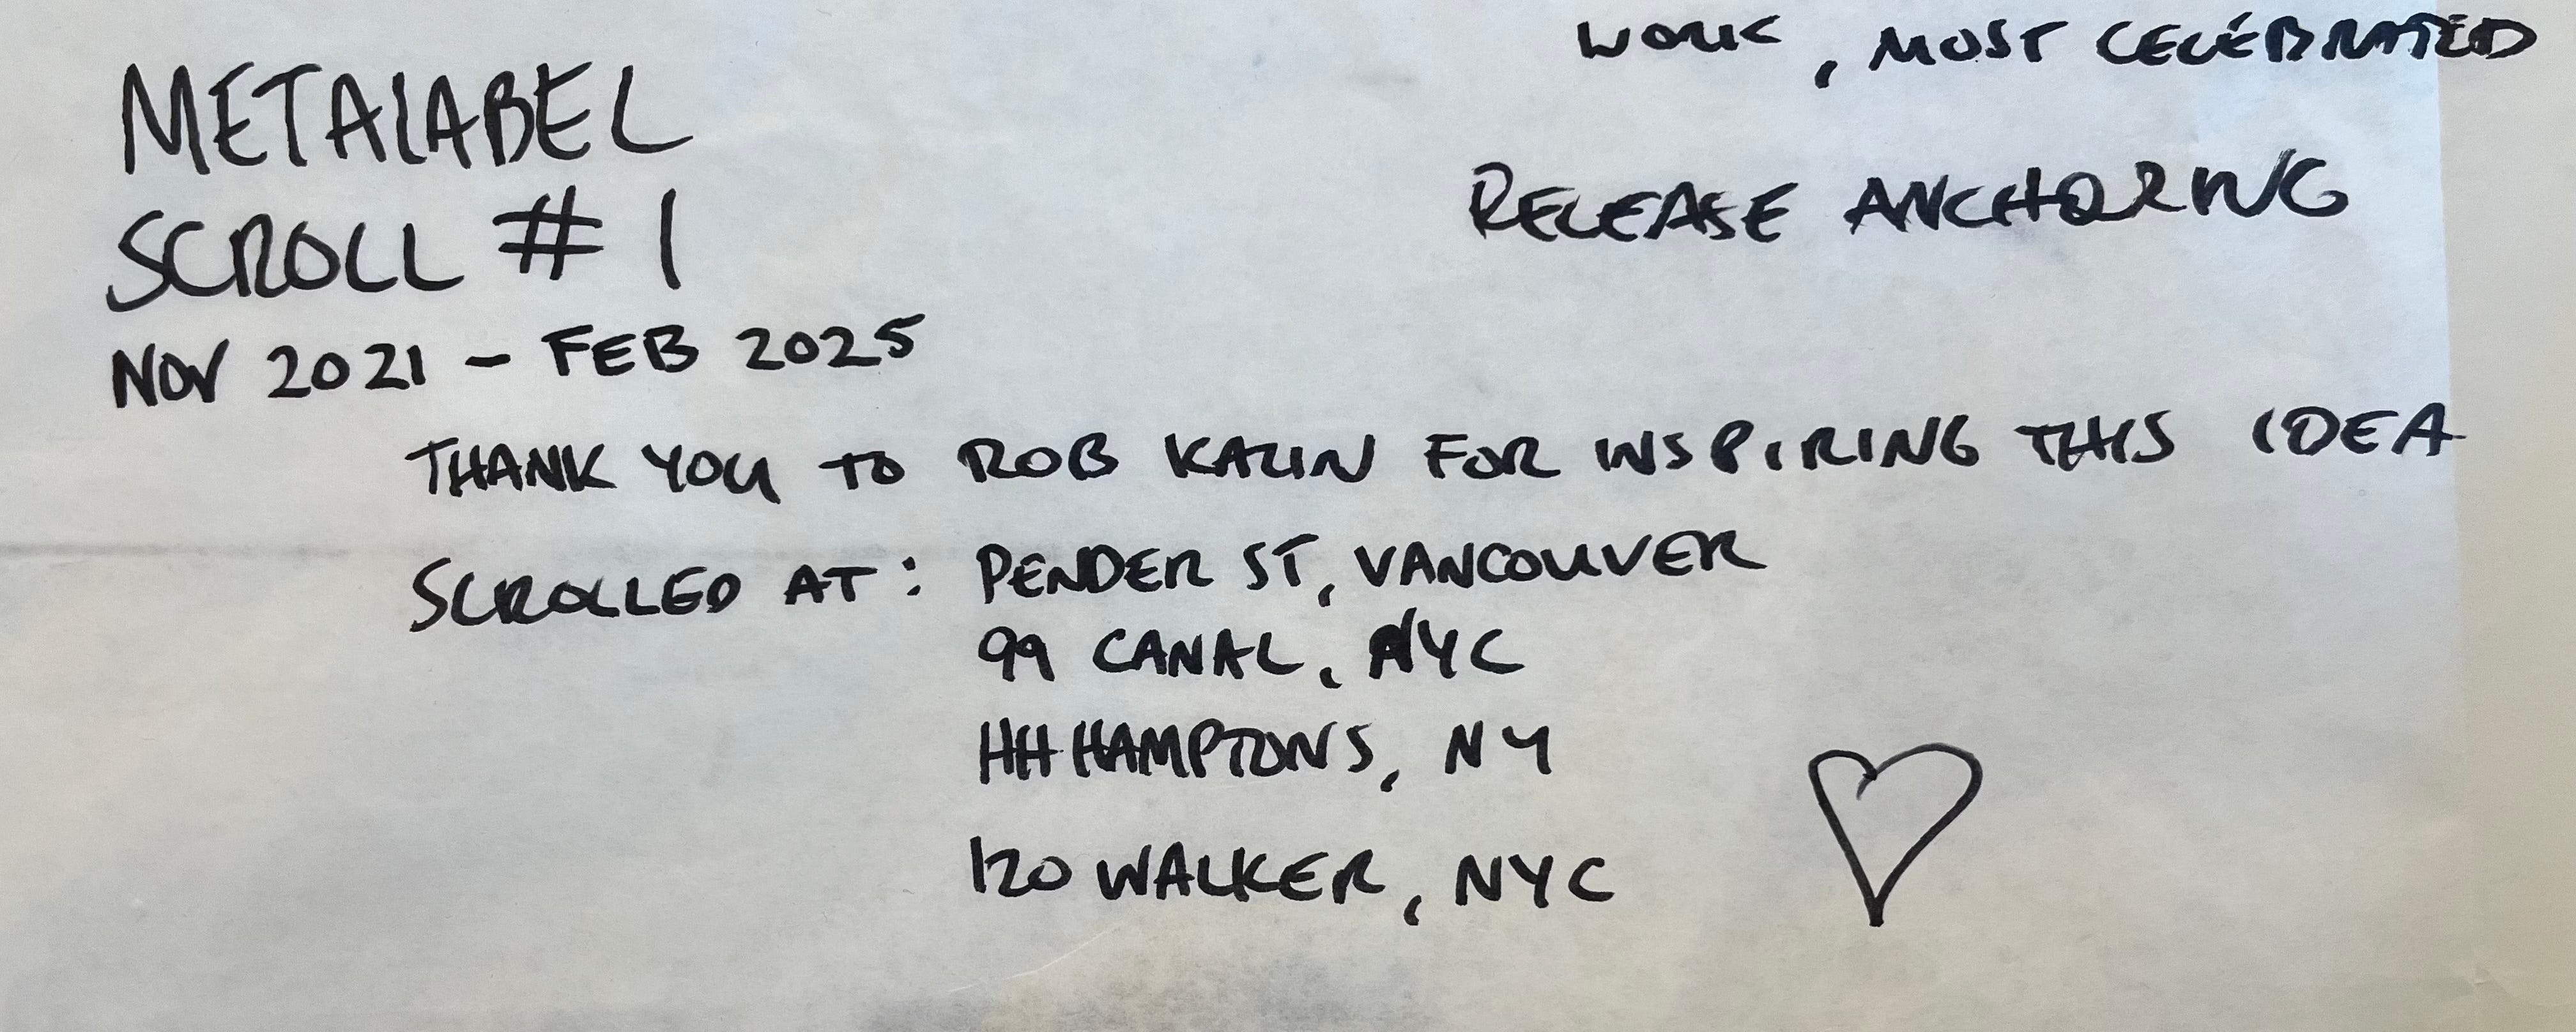 WORK, MOST CELEBRATED
METALABEL
RELEASE ANCHORING
SCROLL #1
NOV 2021 - FEB 2025
THANK YOU TO ROB KALIN FOR INSPIRING THIS IDEA
SCROLLED AT: PENDER ST, VANCOUVER
99 CANAL, NYC
HH HAMPTONS, NY
120 WALKER, NYC